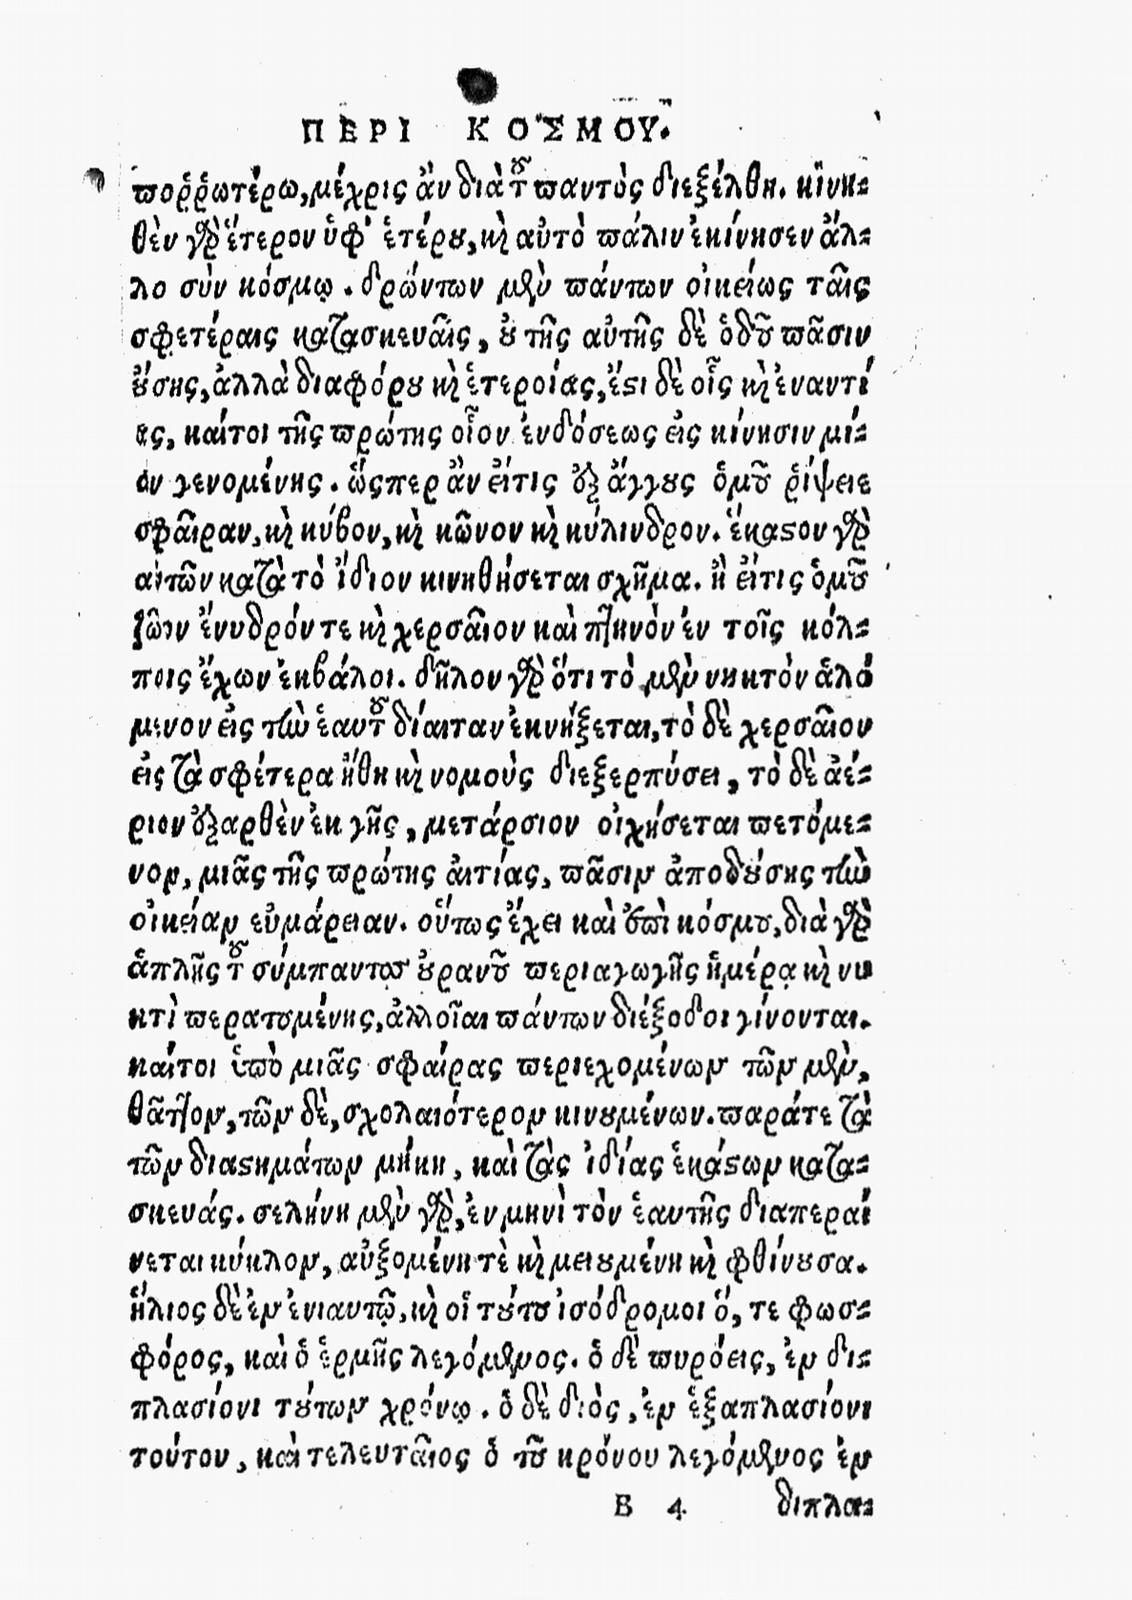 ΠΕΡΙ ΚΟΣΜΟΥ.
πορῤῥωτέρω, μέχρις ἂν διὰ τοῦ παντὸς διεξέλθη. κϊνη-
θὲν γὰρ ἕτερον ὑφ' ἑτέρου, καὶ αὐτὸ πάλιν ἐκίνησεν ἄλ-
λο σὺν κόσμῳ. δρώντων μὲν πάντων οἰκείως ταῖς
σφετέραις κατασκευαῖς, οὐ τῆς αὐτῆς δὲ ὁδοῦ πᾶσιν
οὔσης, ἀλλὰ διαφόρου καὶ ἑτεροίας, ἔστι δὲ οἷς καὶ ἐναντί
ας, καίτοι τῆς πρώτης οἷον ἐνδόσεως εἰς κίνησιν μί-
αν γενομένης. ὥσπερ ἂν εἴτις ἐξ ἄγγους ὁμοῦ ῥίψειε
σφαῖραν, καὶ κύβον, καὶ κῶνον καὶ κύλινδρον. ἕκαστον γὰρ
αὐτῶν κατὰ τὸ ἴδιον κινηθήσεται σχῆμα. ἢ εἴτις ὁμοῦ
ζῶον ἔνυδρόν τε καὶ χερσαῖον καὶ πτηνὸν ἐν τοῖς κόλ-
ποις ἔχων ἐκβάλοι. δῆλον γὰρ ὅτι τὸ μὲν νηκτὸν ἁλό
μενον εἰς τὴν ἑαυτοῦ δίαιταν ἐκνήξεται, τὸ δὲ χερσαῖον
εἰς τὰ σφέτερα ἤθη καὶ νομοὺς διεξερπύσει, τὸ δὲ ἀέ-
ριον ἐξαρθὲν ἐκ γῆς, μετάρσιον οἰχήσεται πετόμε-
νον, μιᾶς τῆς πρώτης αἰτίας, πᾶσιν ἀποδούσης τὴν
οἰκείαν εὐμάρειαν. οὕτως ἔχει καὶ ἐπὶ κόσμου, διὰ γὰρ
ἁπλῆς τοῦ σύμπαντος οὐρανοῦ περιαγωγῆς ἡμέρᾳ καὶ νυ
κτὶ περατουμένης, ἀλλοῖαι πάντων διέξοδοι γίνονται.
καίτοι ὑπὸ μιᾶς σφαίρας περιεχομένων τῶν μὲν,
θᾶττον, τῶν δὲ, σχολαιότερον κινουμένων. παράτε τὰ
τῶν διαστημάτων μήκη, καὶ τὰς ἰδίας ἑκάστων κατα-
σκευάς. σελήνη μὲν γὰρ, ἐν μηνὶ τὸν ἑαυτῆς διαπεραί
νεται κύκλον, αὐξομένη τὲ καὶ μειουμένη καὶ φθίνουσα.
ἥλιος δὲ ἐν ἐνιαυτῷ, καὶ οἱ τούτου ἰσόδρομοι ὅ, τε φωσ-
φόρος, καὶ ὁ ἑρμῆς λεγόμενος. ὁ δὲ πυρόεις, ἐν δι-
πλασίονι τούτων χρόνῳ. ὁ δὲ διὸς, ἐν ἑξαπλασίονι
τούτου, καὶ τελευταῖος ὁ τοῦ κρόνου λεγόμενος ἐν
B 4 διπλα-